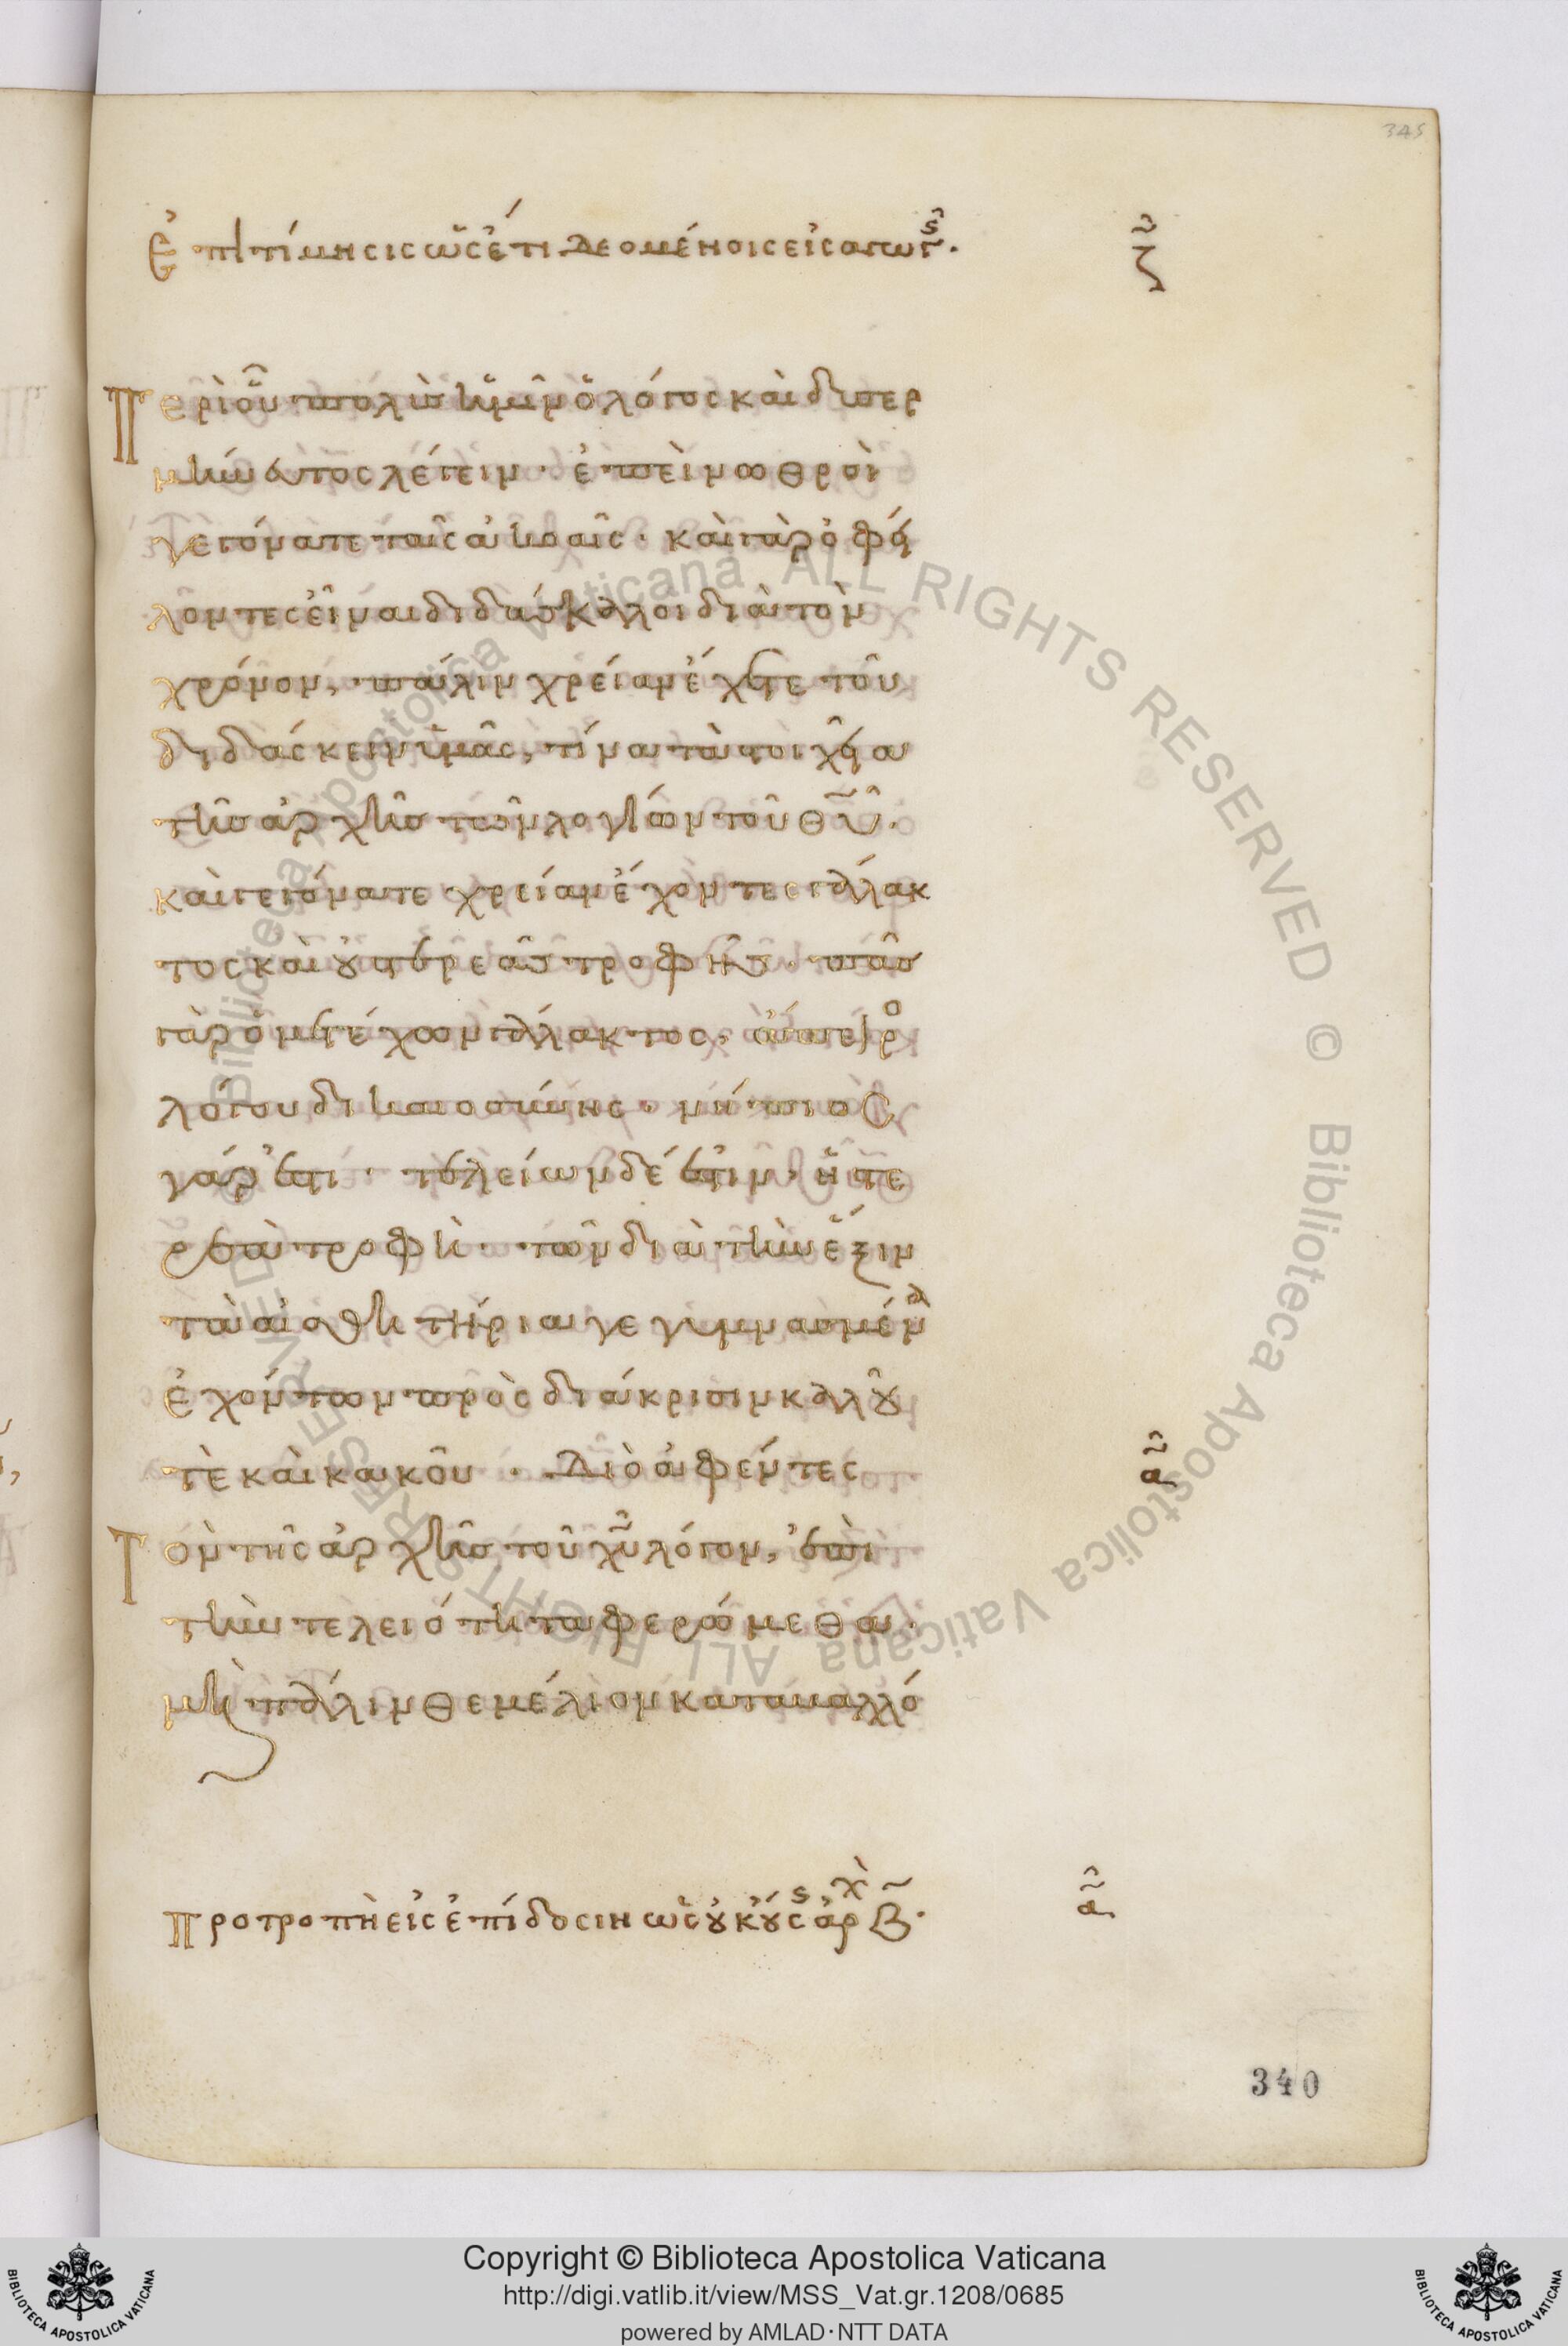 345
Ἐπιτίμησις ὡς ἔτι δεομένοις εἰσαγωγῆς.
ζ
Περὶ οὗ πολὺς ἡμῖν ὁ λόγος καὶ δυσερ
μήνευτος λέγειν. ἐπεὶ νωθροὶ
γεγόνατε ταῖς ἀκοαῖς. καὶ γὰρ ὀφεί
λοντες εἶναι διδάσκαλοι διὰ τὸν
χρόνον, πάλιν χρείαν ἔχετε τοῦ
διδάσκειν ὑμᾶς, τίνα τὰ στοιχεῖα
τῆς ἀρχῆς τῶν λογίων τοῦ θυ.
καὶ γεγόνατε χρείαν ἔχοντες γάλακ
τος καὶ οὐ στερεᾶς τροφῆς. πᾶς
γὰρ ὁ μετέχων γάλακτος, ἄπειρο
λόγου δικαιοσύνης. νήπιος
γάρ ἐστι. τελείων δέ ἐστιν, ἡ στε
ρεὰ τροφὴ. τῶν διὰ τὴν ἕξιν
τὰ αἰσθητήρια γεγυμνασμένα
ἐχόντων πρὸς διάκρισιν καλοῦ
τὲ καὶ κακοῦ. Διὸ ἀφέντες
α
Τὸν τῆς ἀρχῆς τοῦ χυ λόγον, ἐπὶ
τὴν τελειότητα φερώμεθα.
μὴ πάλιν θεμέλιον καταβαλλό
Προτροπὴ εἰς ἐπίδοσιν ὡς οὐκ οὔσης ἀρχῆς β.
α
340
Biblioteca Apostolica Vaticana ALL RIGHTS RESERVED © Biblioteca Apostolica Vaticana ALL RIGHTS RESERVED ©
Copyright © Biblioteca Apostolica Vaticana
http://digi.vatlib.it/view/MSS_Vat.gr.1208/0685
powered by AMLAD·NTT DATA
BIBLIOTECA APOSTOLICA VATICANA
BIBLIOTECA APOSTOLICA VATICANA